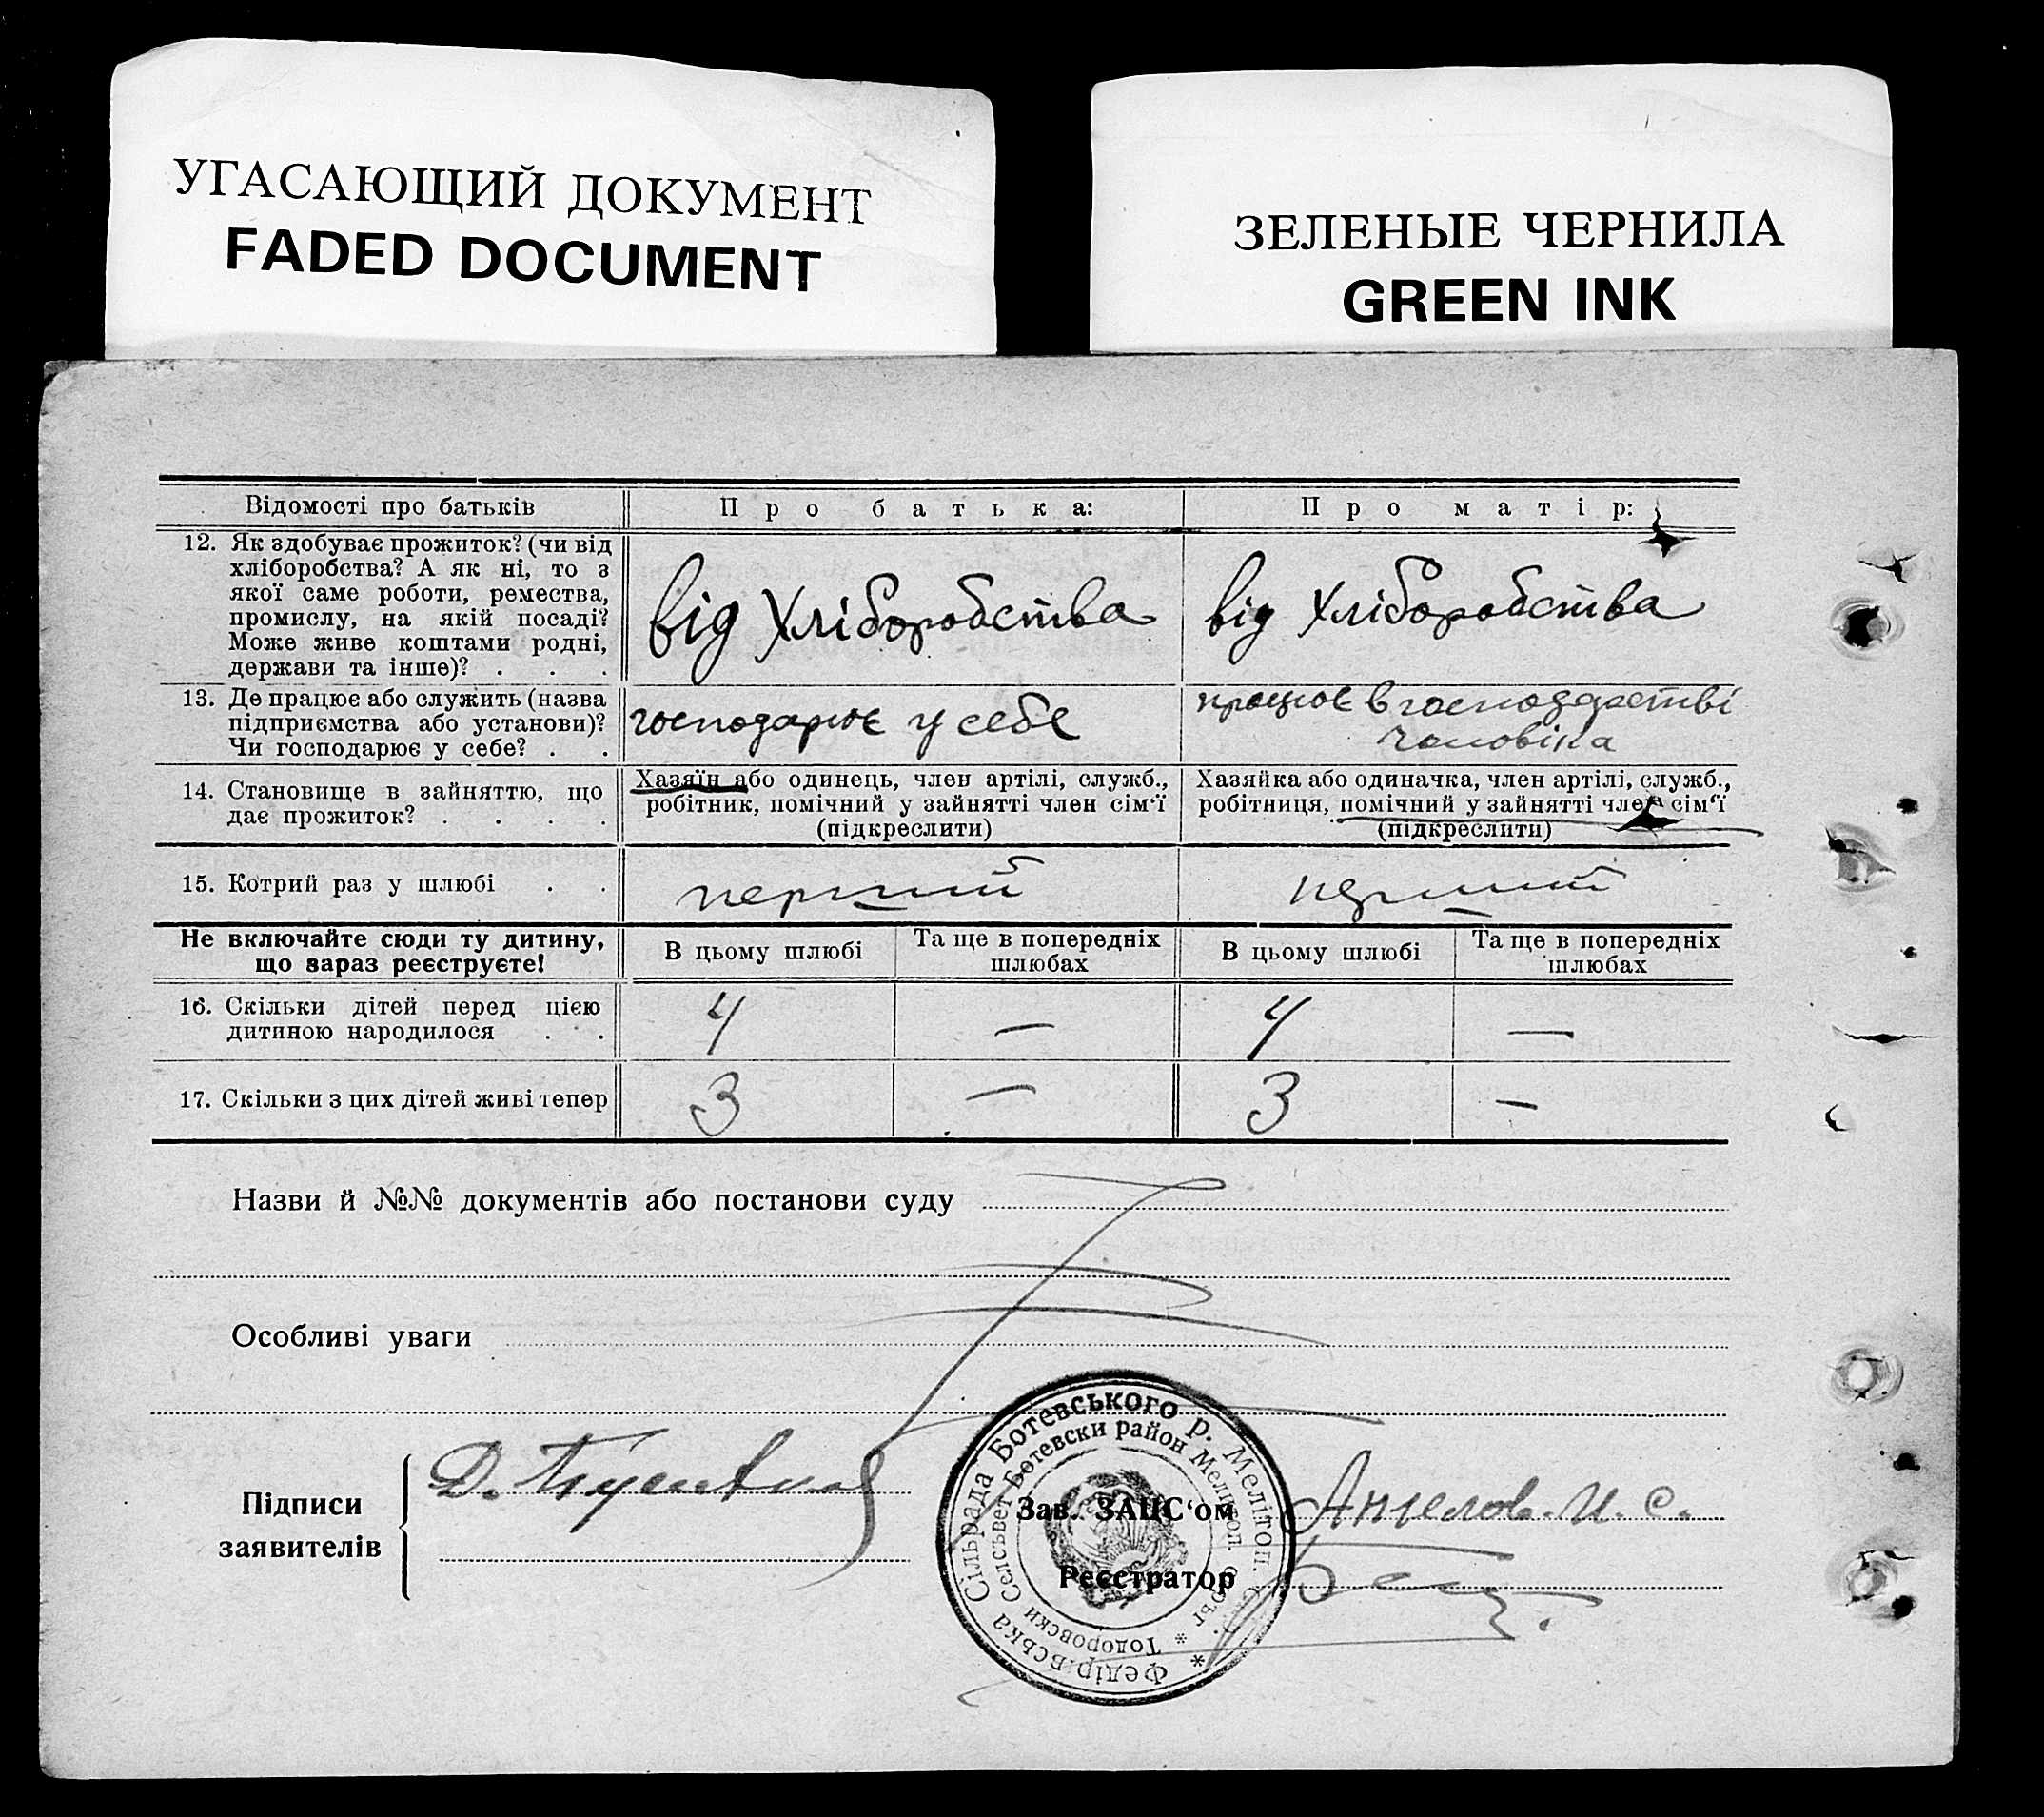 УГАСАЮЩИЙ ДОКУМЕНТ
FADED DOCUMENT
ЗЕЛЕНЫЕ ЧЕРНИЛА
GREEN INK
Відомості про батьків
Про батька:
Про матір:
12. Як здобуває прожиток? (чи від
хліборобства? А як ні, то з
якої саме роботи, ремества,
промислу, на якій посаді?
Може живе коштами родні,
держави та інше)? . . .
від хліборобства
від хліборобства
13. Де працює або служить (назва
підприємства або установи)?
Чи господарює у себе? . .
господарює у себе
працює в господарстві
чоловіка
14. Становище в зайняттю, що
дає прожиток? . . . .
Хазяїн або одинець, член артілі, служб.,
робітник, помічний у зайнятті член сім'ї
(підкреслити)
Хазяйка або одиначка, член артілі, служб.,
робітниця, помічний у зайнятті член сім'ї
(підкреслити)
15. Котрий раз у шлюбі . .
перший
перший
Не включайте сюди ту дитину,
що зараз реєструєте!
В цьому шлюбі
Та ще в попередніх
шлюбах
В цьому шлюбі
Та ще в попередніх
шлюбах
16. Скільки дітей перед цією
дитиною народилося . .
4
—
4
—
17. Скільки з цих дітей живі тепер
3
—
3
—
Назви й №№ документів або постанови суду
Особливі уваги
Підписи
заявителів
Д.
Зав. ЗАЦС'ом
Ангелов. И. С.
Реєстратор
Федір.вська Сільрада Ботевського р. Мелітоп. *
Тодоровски Селсьвет Ботевски район Мелітоп. окръг. *